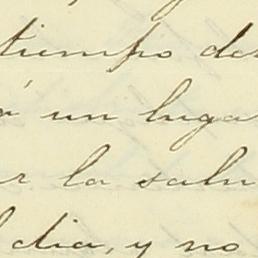 tiempo des
á un luga
ar la salu
l dia, y no